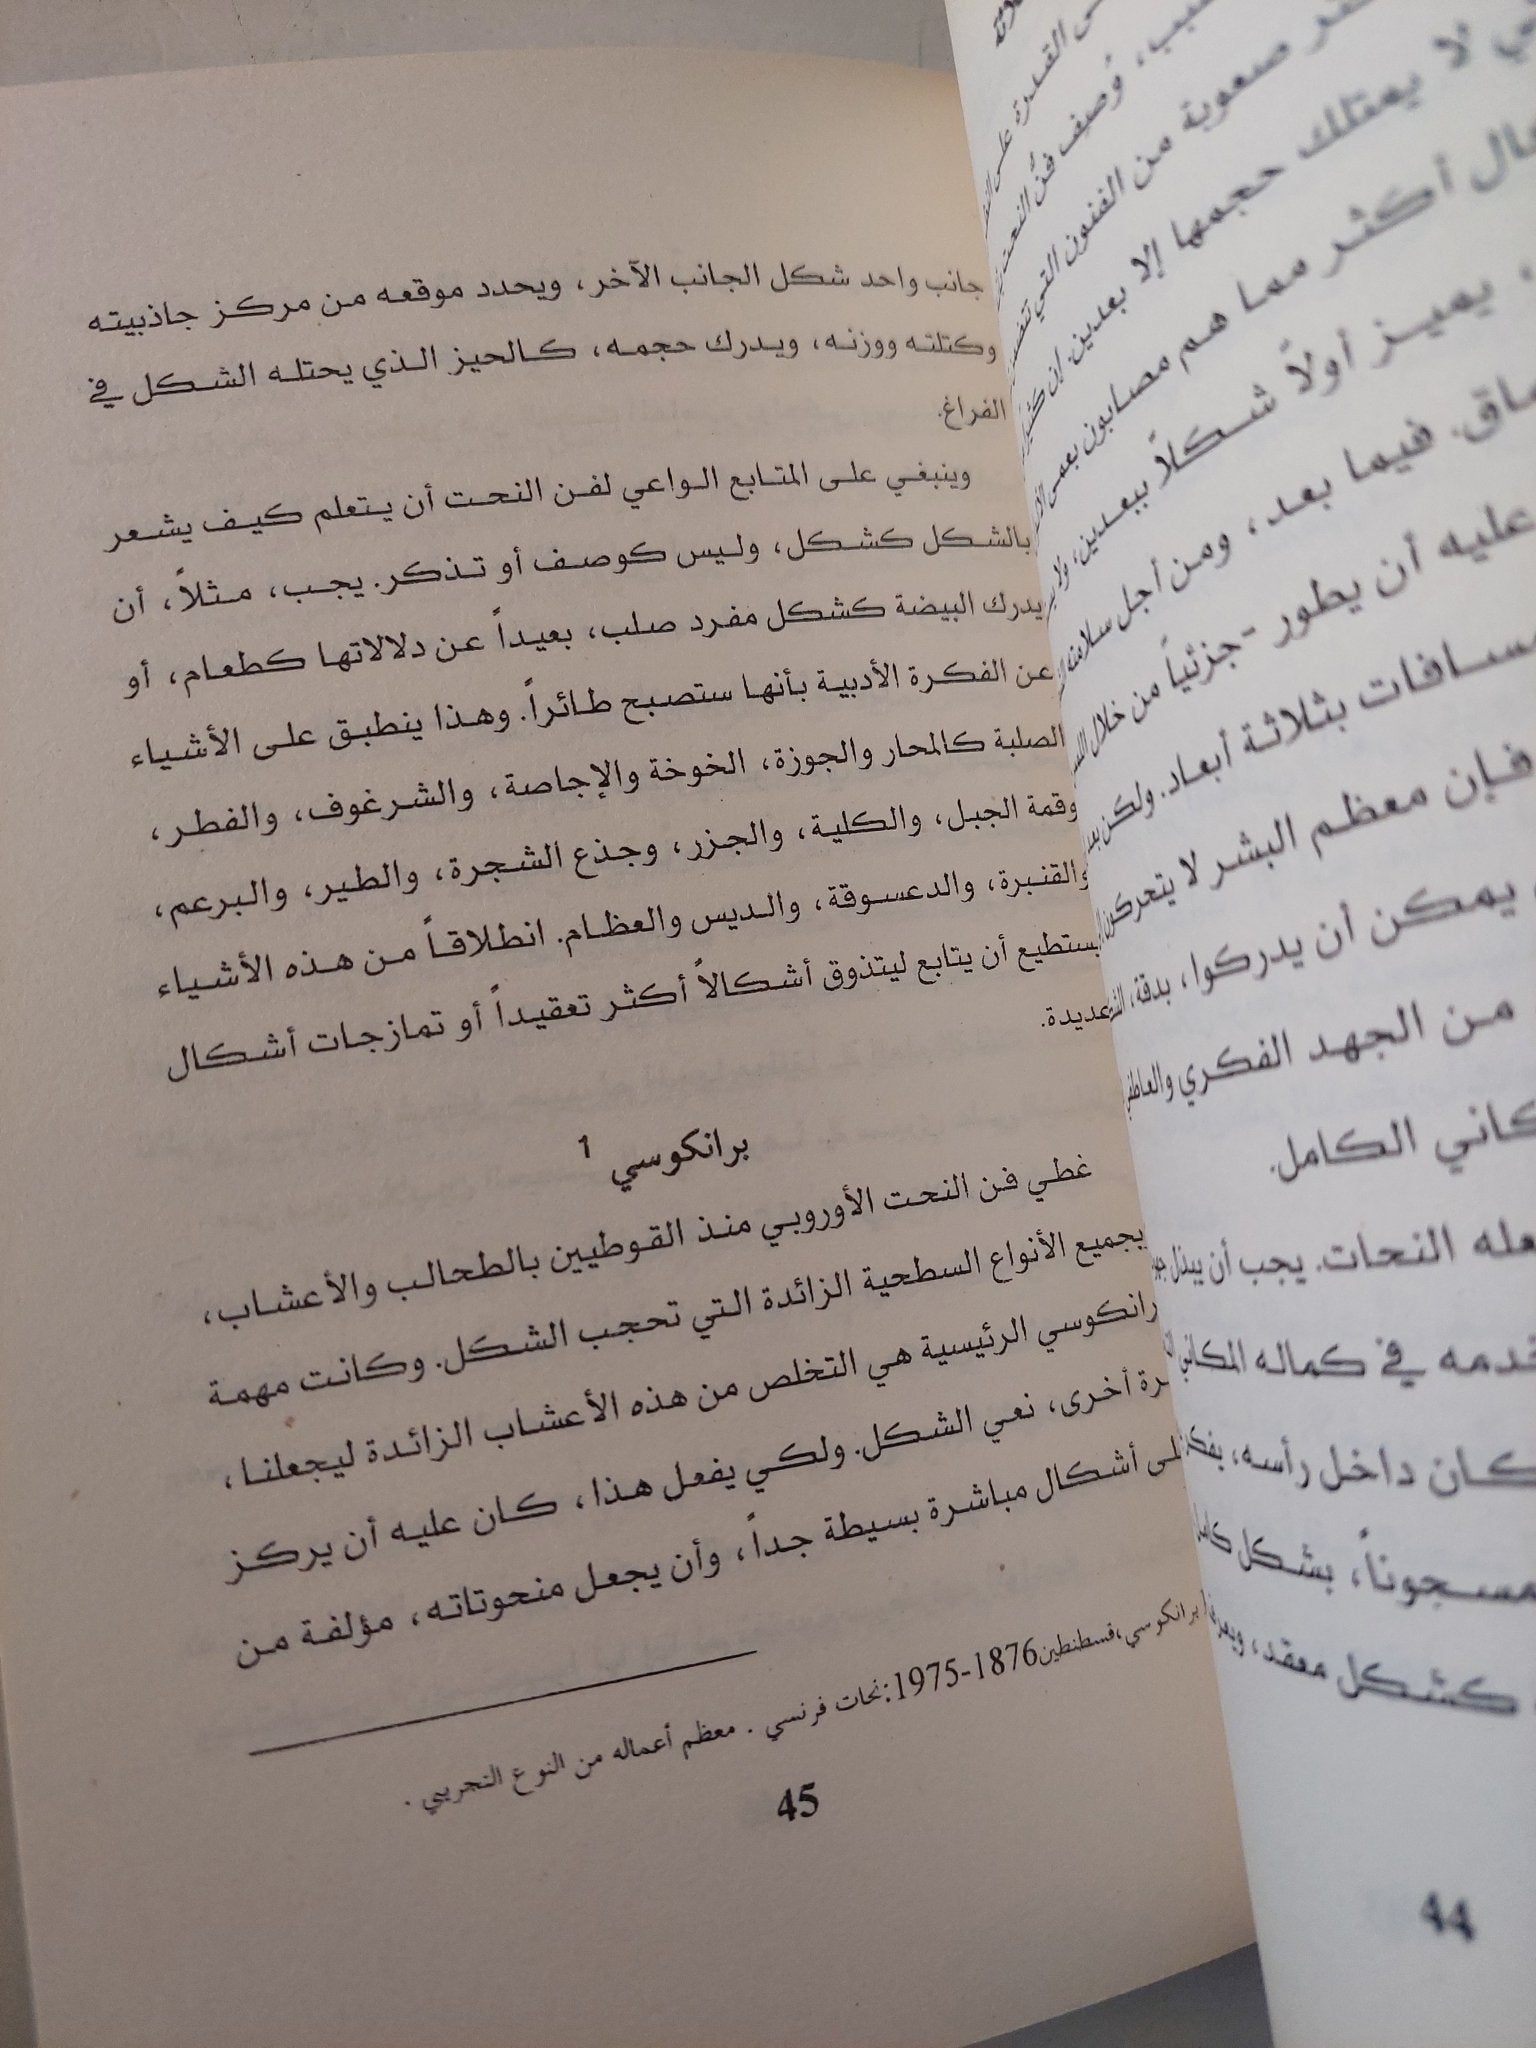 صعوبة من الفنون التي
لا يمتلك حجمها إلا بعدين. إن
أكثر مما هم مصابون بعمى
يميز أولاً شكلاً ببعدين، ولا
فيما بعد، ومن أجل سلامته
عليه أن يطور -جزئياً من خلال
بثلاثة أبعاد. ولكن
فإن معظم البشر لا يتحركون
يمكن أن يدركوا، بدقة،
من الجهد الفكري والعاطفي
الكامل.
النحات. يجب أن يبذل
في كماله المكاني
داخل رأسه، يفكر
بشكل
كشكل معقد،
44
جانب واحد شكل الجانب الآخر، ويحدد موقعه من مركز جاذبيته
وكتلته ووزنه، ويدرك حجمه، كالحيز الذي يحتله الشكل في
الفراغ.
وينبغي على المتابع الواعي لفن النحت أن يتعلم كيف يشعر
بالشكل كشكل، وليس كوصف أو تذكر. يجب، مثلاً، أن
يدرك البيضة كشكل مفرد صلب، بعيداً عن دلالاتها كطعام، أو
عن الفكرة الأدبية بأنها ستصبح طائراً. وهذا ينطبق على الأشياء
الصلبة كالمحار والجوزة، الخوخة والإجاصة، والشرغوف، والفطر،
وقمة الجبل، والكلية، والجزر، وجذع الشجرة، والطير، والبرعم،
والقنبرة، والدعسوقة، والديس والعظام. انطلاقاً من هذه الأشياء
يستطيع أن يتابع ليتذوق أشكالاً أكثر تعقيداً أو تمازجات أشكال
عديدة.
برانكوسي 1
غطي فن النحت الأوروبي منذ القوطيين بالطحالب والأعشاب،
بجميع الأنواع السطحية الزائدة التي تحجب الشكل. وكانت مهمة
برانكوسي الرئيسية هي التخلص من هذه الأعشاب الزائدة ليجعلنا،
مرة أخرى، نعي الشكل. ولكي يفعل هذا، كان عليه أن يركز
على أشكال مباشرة بسيطة جداً، وأن يجعل منحوتاته، مؤلفة من
برانكوسي،قسطنطين1876-1975:نحات فرنسي . معظم أعماله من النوع التجريبي .
45